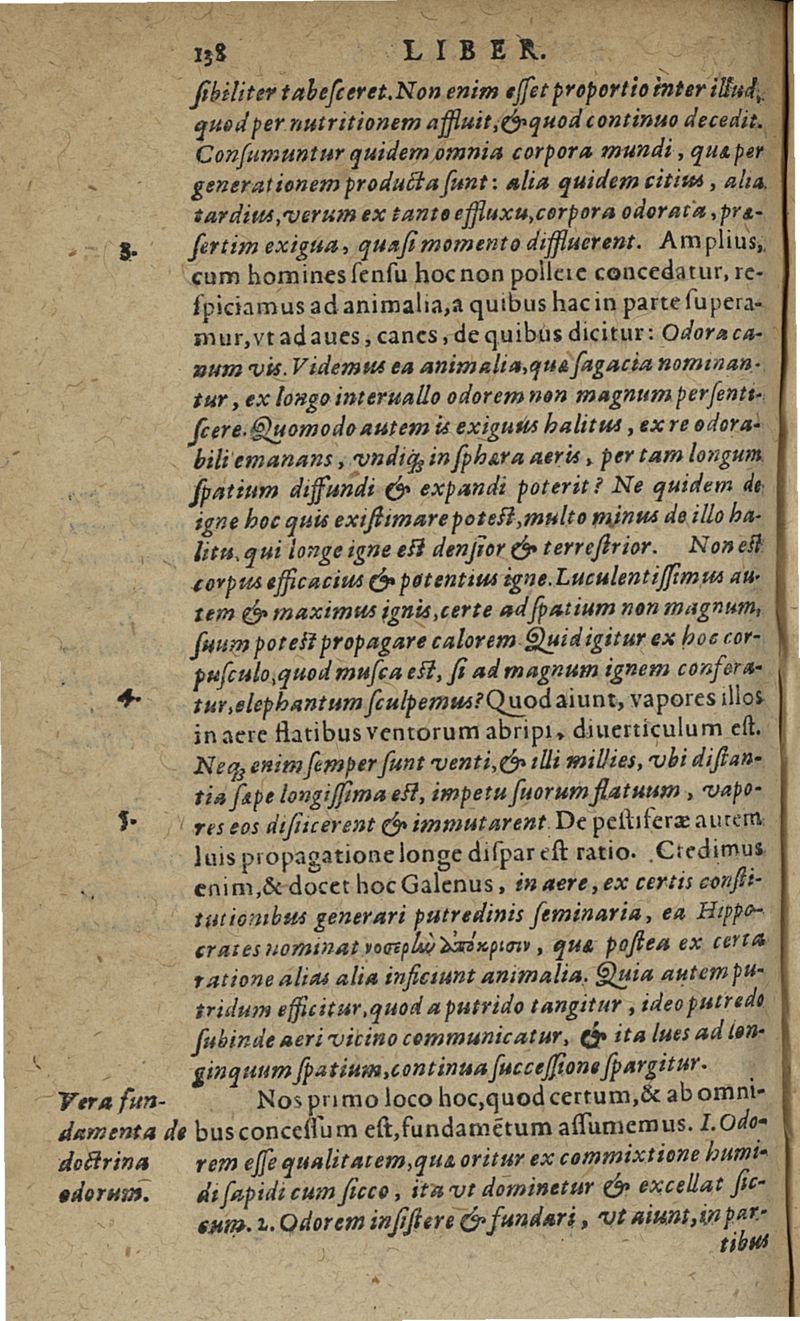 138 LIBER.
ſibiliter tabeſceret. Non enim eſſet proportio inter illud,
quod per nutritionem affluit, & quod continuo decedit.
Conſumuntur quidem omnia corpora mundi, quæ per
generationem producta ſunt: alia quidem citius, alia
tardius, verum ex tanto effluxu, corpora odorata, præ-
3. ſertim exigua, quaſi momento diffluerent. Amplius,
cum homines ſenſu hoc non pollere concedatur, re-
ſpiciamus ad animalia, a quibus hac in parte ſupera-
mur, vt ad aues, canes, de quibus dicitur: Odora ca-
num vis. Videmus ea animalia, quæ ſagacia nominan-
tur, ex longo interuallo odorem non magnum perſenti-
ſcere. Quomodo autem is exiguus halitus, ex re odora-
bili emanans, vndiq; in ſphæra aeris, per tam longum
ſpatium diffundi & expandi poterit? Ne quidem de
igne hoc quis exiſtimare poteſt, multo minus de illo ha-
litu, qui longe igne eſt denſior & terreſtrior. Non eſt
corpus efficacius & potentius igne. Luculentiſſimus au-
tem & maximus ignis, certe ad ſpatium non magnum,
ſuum poteſt propagare calorem. Quid igitur ex hoc cor-
puſculo, quod muſca eſt, ſi ad magnum ignem confera-
4. tur, elephantum ſculpemus? Quod aiunt, vapores illos
in aere flatibus ventorum abripi, diuerticulum eſt.
Neq; enim ſemper ſunt venti, & illi millies, vbi diſtan-
tia ſæpe longiſſima eſt, impetu ſuorum flatuum, vapo-
5. res eos diſiicerent & immutarent. De peſtiferæ autem
luis propagatione longe diſpar eſt ratio. Credimus
enim, & docet hoc Galenus, in aere, ex certis conſti-
tutionibus generari putredinis ſeminaria, ea Hippo-
crates nominat νοσερὴν ἀπόκρισιν, quæ poſtea ex certa
ratione alias alia inficiunt animalia. Quia autem pu-
tridum efficitur, quod a putrido tangitur, ideo putredo
ſubinde aeri vicino communicatur, & ita lues ad lon-
ginquum ſpatium, continua ſucceſſione ſpargitur.
Vera fun- Nos primo loco hoc, quod certum, & ab omni-
damenta de bus conceſſum eſt, fundamētum aſſumemus. 1. Odo-
doctrina rem eſſe qualitatem, quæ oritur ex commixtione humi-
odorum. di ſapidi cum ſicco, ita vt dominetur & excellat ſic-
cum. 2. Odorem inſiſtere & fundari, vt aiunt, in par-
tibus